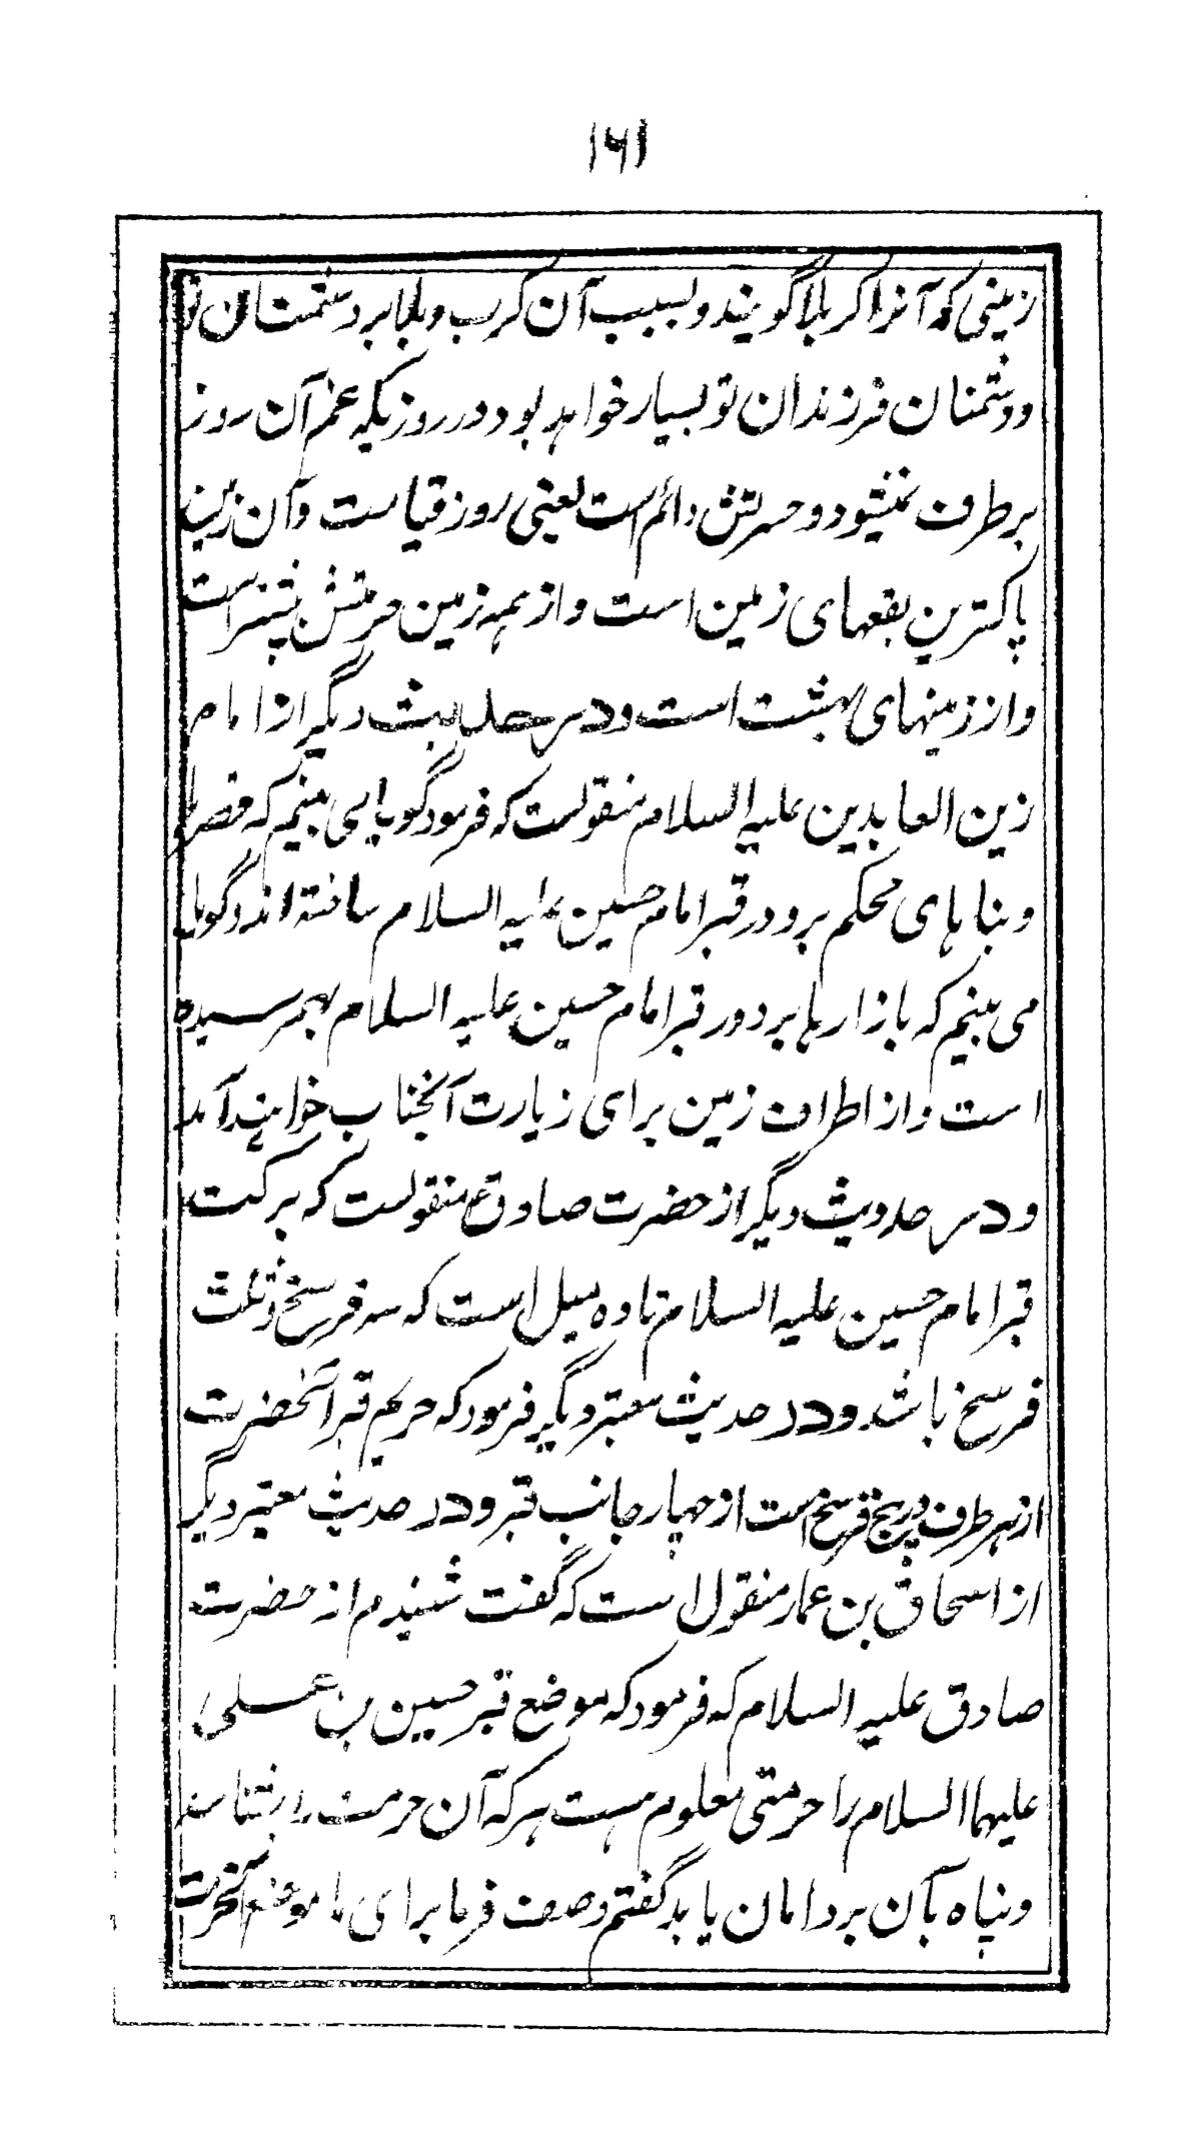 ۱۶۱
زمینی که آنرا کربلا گویند و بسبب آن کرب و بلا بر دشمنان تو
و دشمنان فرزندان تو بسیار خواهد بود در روزیکه غم آن روز
برطرف نمیشود و حسرتش دائم است یعنی روز قیامت و آن زمین
پاکترین بقعهای زمین است و از همه زمین حرمتش بیشتر است
و از زمینهای بهشت است و در حدیث دیگر از امام
زین العابدین علیه السلام منقولست که فرمود گویا می بینم که قصرها
و بنا های محکم بر دور قبر امام حسین علیه السلام ساخته اند و گویا
می بینم که بازارها بر دور قبر امام حسین علیه السلام بهم رسیده
است و از اطراف زمین برای زیارت آنجناب خواهند آمد
و در حدیث دیگر از حضرت صادق ع منقولست که برکت
قبر امام حسین علیه السلام تا ده میل است که سه فرسخ و ثلث
فرسخ باشد و در حدیث معتبر دیگر فرمود که حریم قبر آنحضرت
از هر طرف پنج فرسخ است از چهار جانب قبر و در حدیث معتبر دیگر
از اسحاق بن عمار منقول است که گفت شنیدم از حضرت
صادق علیه السلام که فرمود که موضع قبر حسین بن علی
علیهما السلام را حرمتی معلوم هست هر که آن حرمت را بشناسد
و پناه بآن برد امان یابد گفتم وصف فرما برای ما موضع آنحرمت